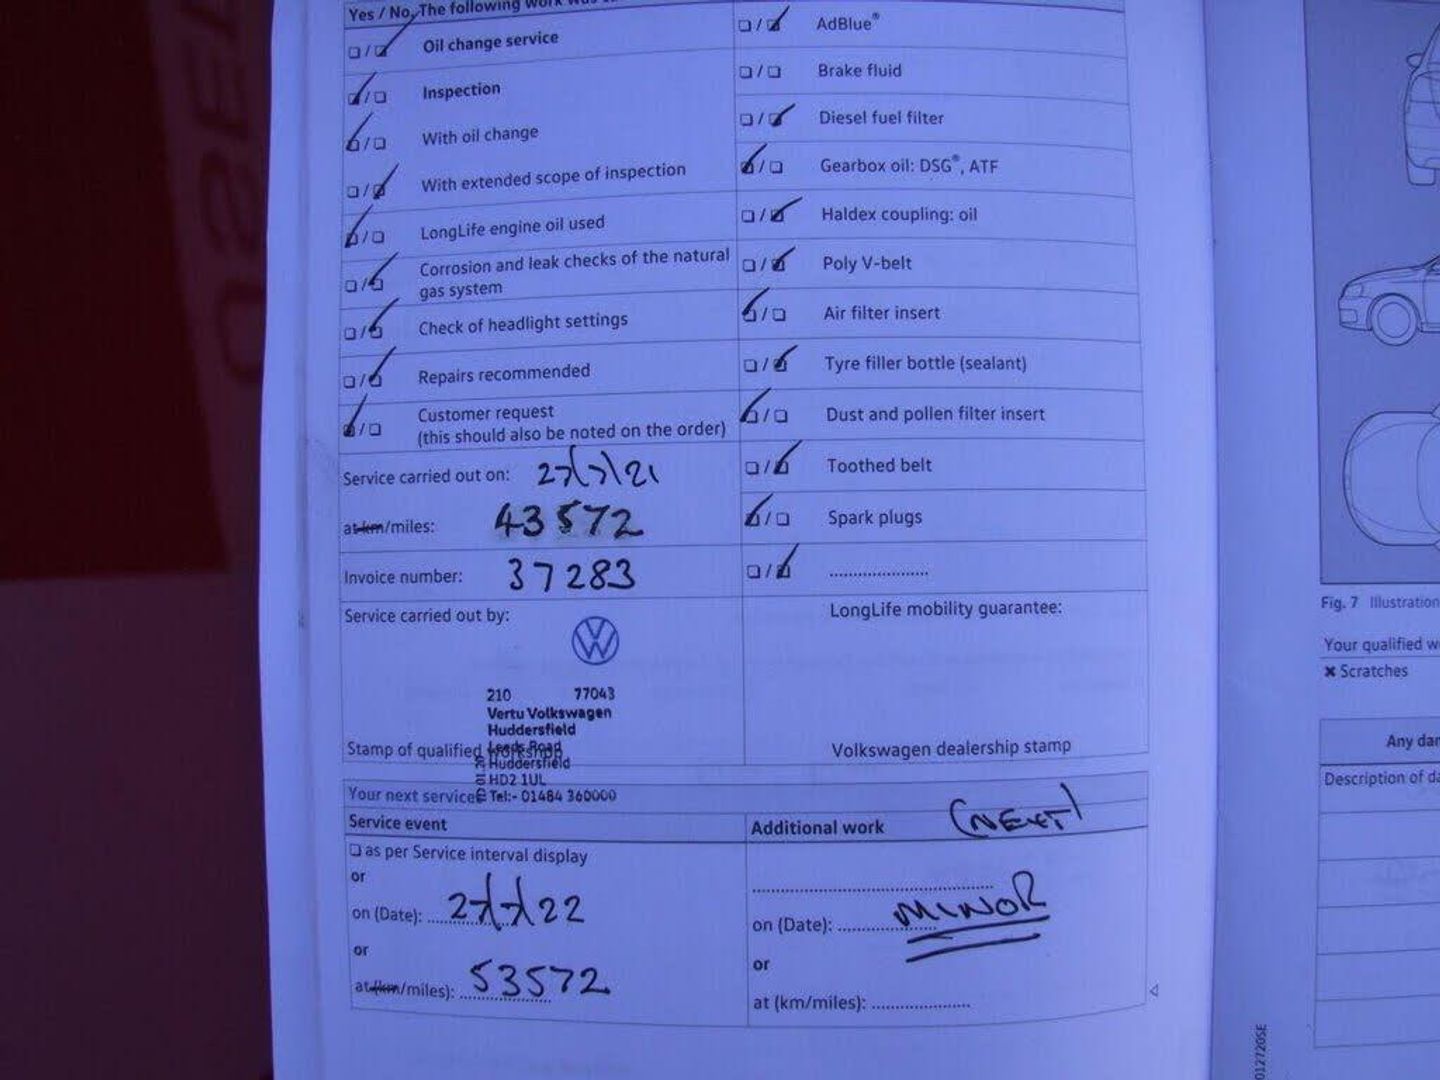 Yes / No, The following work was
Oil change service
Inspection
With oil change
With extended scope of inspection
LongLife engine oil used
Corrosion and leak checks of the natural
gas system
Check of headlight settings
Repairs recommended
Customer request
(this should also be noted on the order)
Service carried out on: 27/7/21
at km/miles: 43572
Invoice number: 37283
Service carried out by:
210 77043
Vertu Volkswagen
Huddersfield
Leeds Road
Stamp of qualified workshop
Huddersfield
HD2 1UL
Tel:- 01484 360000
AdBlue®
Brake fluid
Diesel fuel filter
Gearbox oil: DSG®, ATF
Haldex coupling: oil
Poly V-belt
Air filter insert
Tyre filler bottle (sealant)
Dust and pollen filter insert
Toothed belt
Spark plugs
LongLife mobility guarantee:
Volkswagen dealership stamp
Your next service
Service event
as per Service interval display
or
on (Date): 27/7/22
or
at (km/miles): 53572
Additional work (NEXT)
on (Date): MINOR
or
at (km/miles):
Fig. 7 Illustration
Your qualified w
✖ Scratches
Any dam
Description of da
012720SE